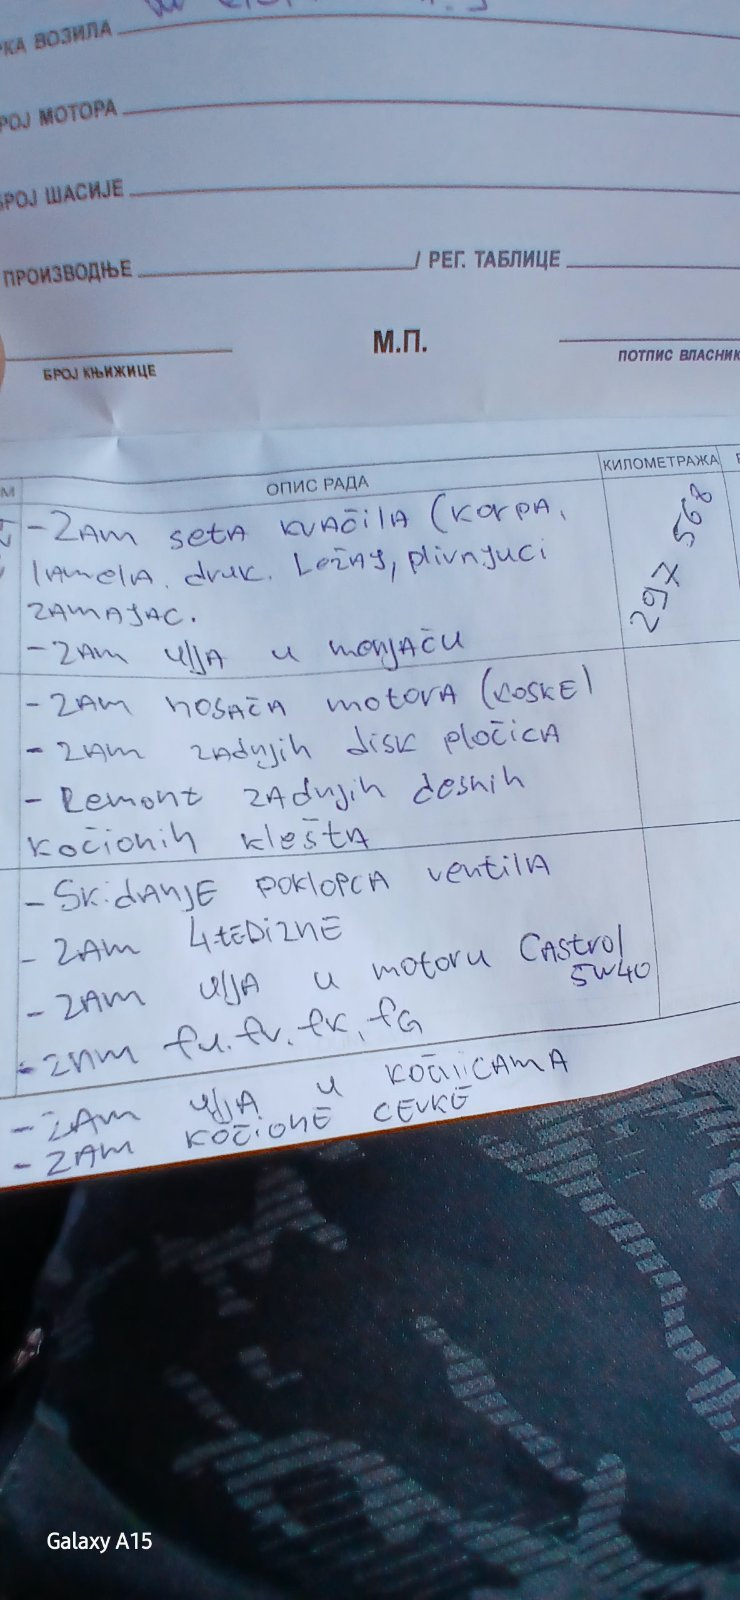 РКА ВОЗИЛА
РОЈ МОТОРА
БРОЈ ШАСИЈЕ
ПРОИЗВОДЊЕ / РЕГ. ТАБЛИЦЕ
М.П.
БРОЈ КЊИЖИЦЕ
ПОТПИС ВЛАСНИК
М ОПИС РАДА КИЛОМЕТРАЖА
- ZAm setA kvAčilA (korpA,
lAmelA, druk. LežAj, plivnjuci
zAmAjAC. 297 568
- ZAm uljA u menjAču
- ZAm nosAčA motorA (KOSKE)
- ZAm zAdnjih disk pločicA
- Remont zAdnjih desnih
kočionih kleštA
- SkidAnjE poklopcA ventilA
- ZAm 4tEDiznE
- ZAm uljA u motoru CAstrol
5W40
- ZAm fu, fv, fk, fG
- ZAm uljA u kočnicAmA
- ZAm kočionE cEvkE
Galaxy A15